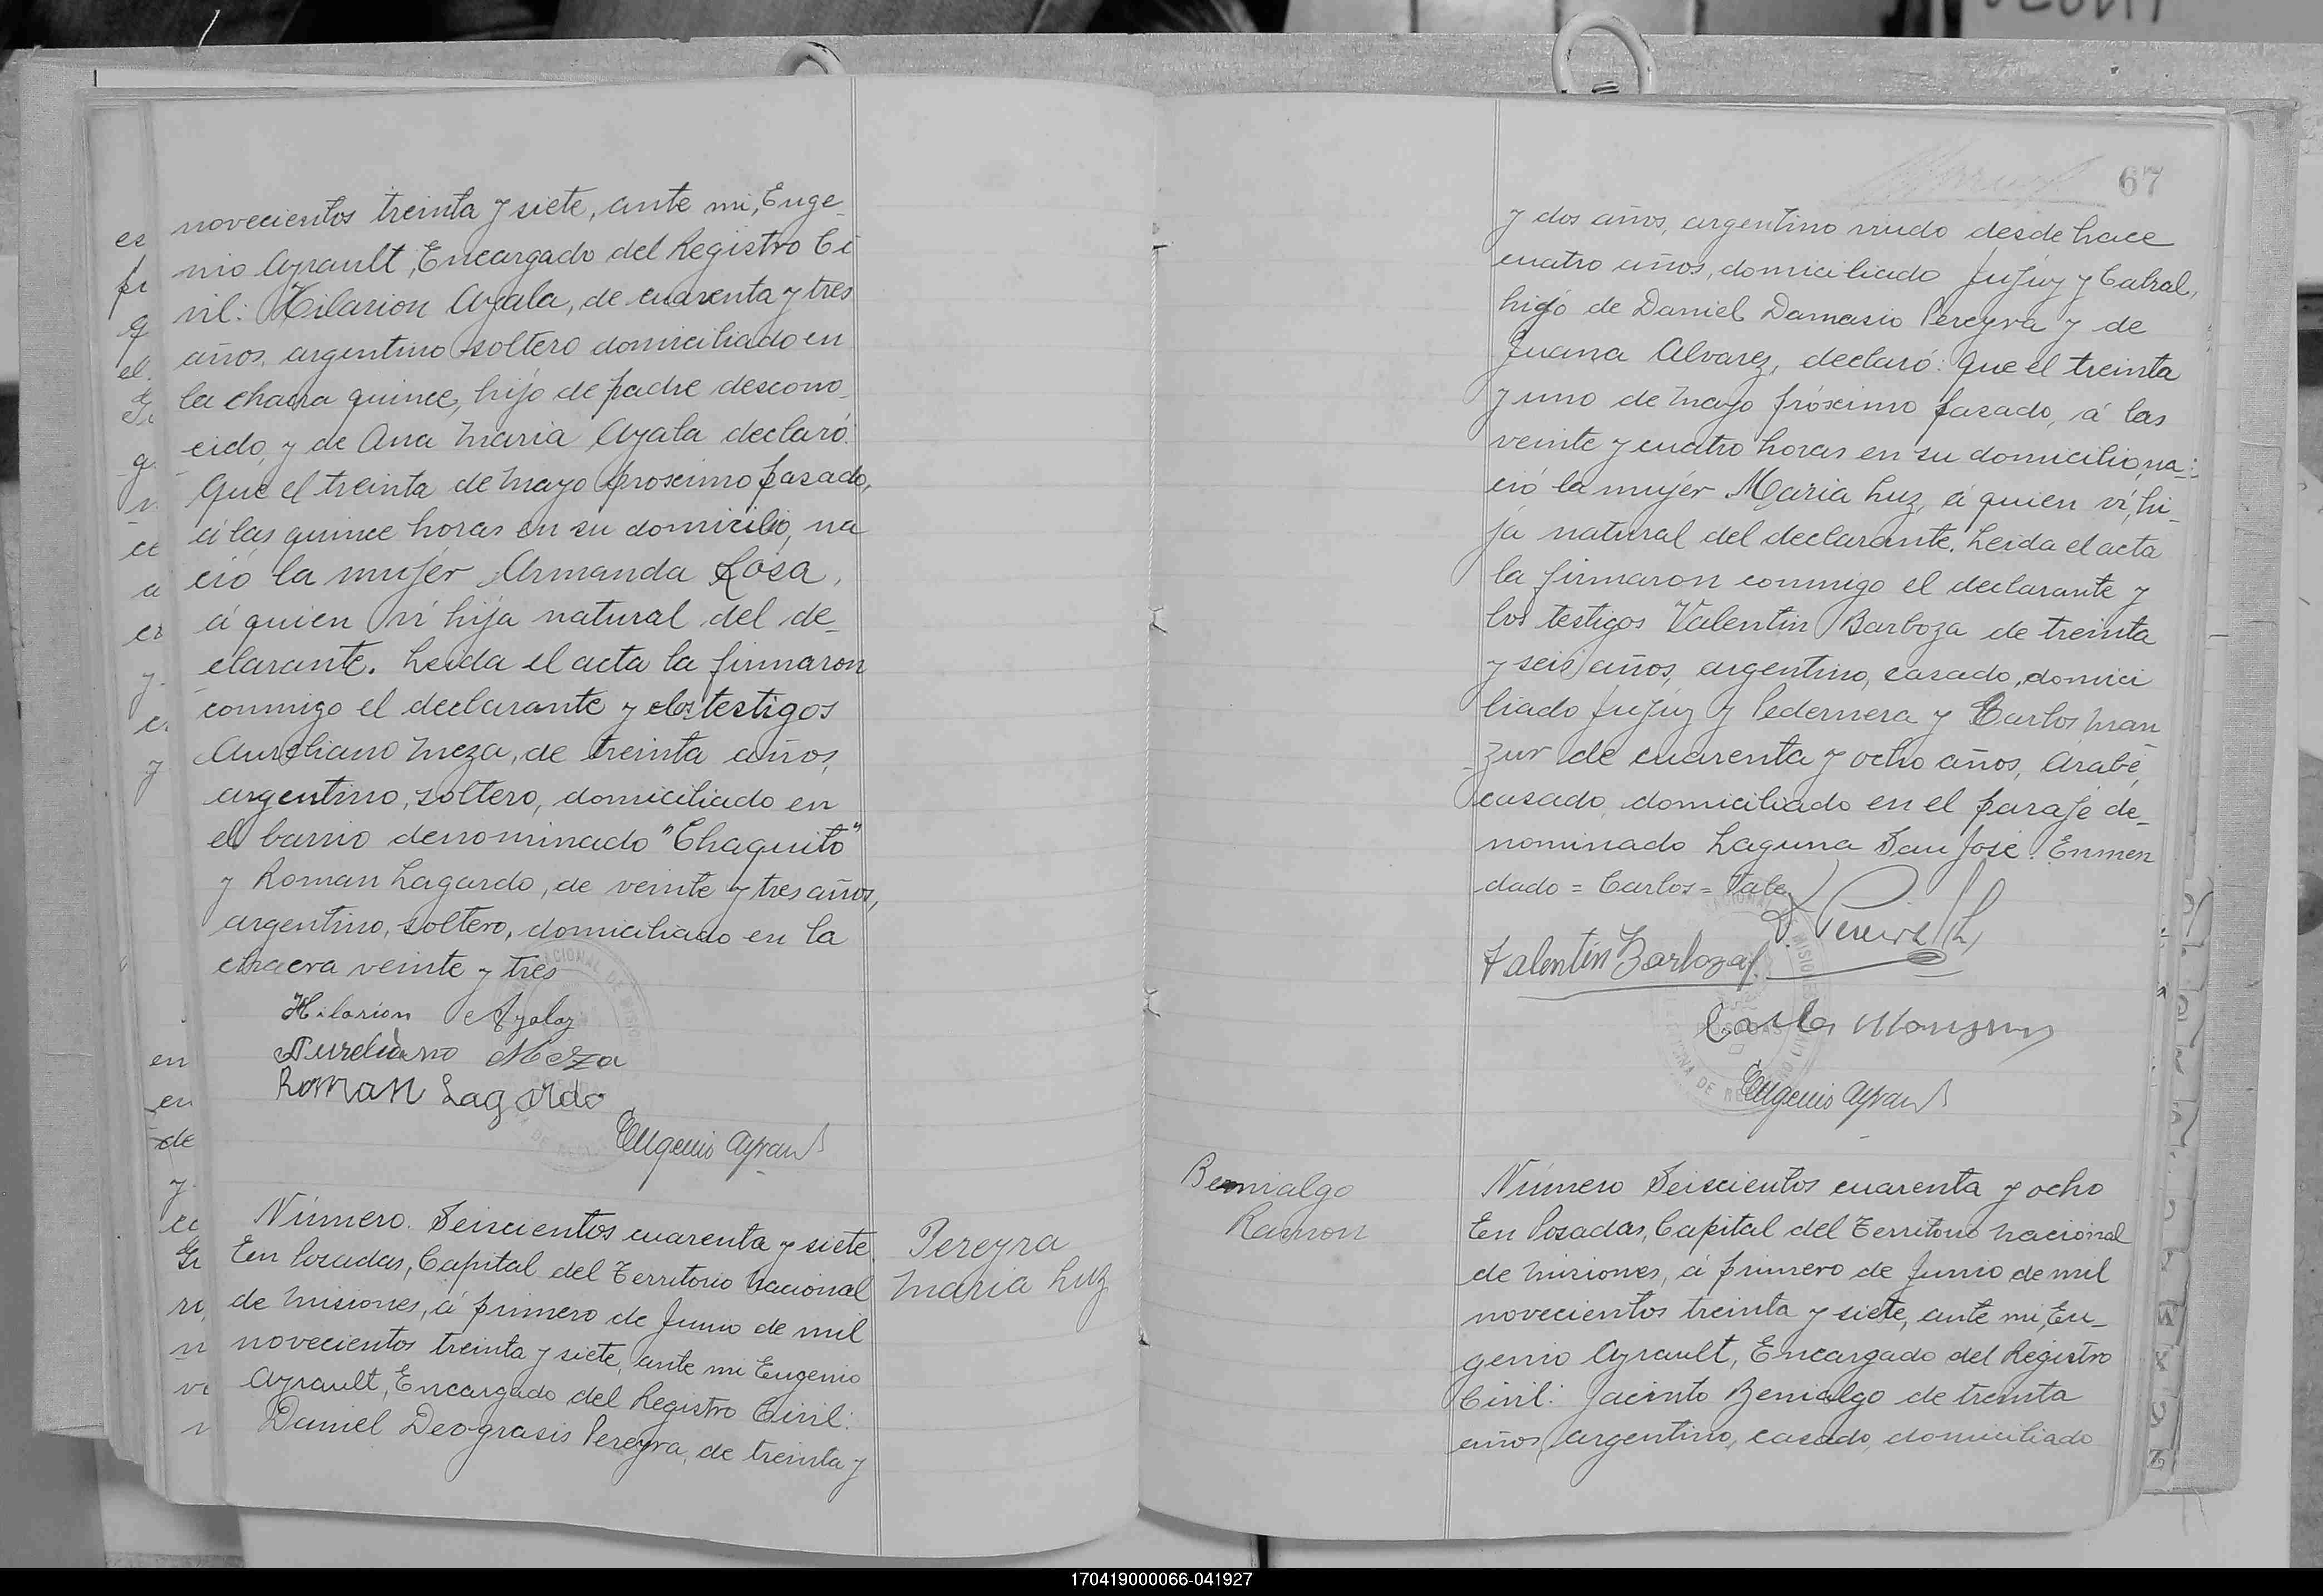 novecientos treinta y siete, ante mi, Euge_
nio Ayrault, Encargado del Registro Ci
vil: Hilarion Ayala, de cuarenta y tres
años, argentino soltero domiciliado en
la chacra quince, hijo de padre descono_
cido, y de Ana Maria Ayala declaró:
Que el treinta de Mayo proscimo pasado,
á las quince horas en su domicilio, na
ció la mujér Armanda Rosa,
á quien ví hija natural del de_
clarante. Leida el acta la firmaron
conmigo el declarante y los testigos
Aureliano Meza, de treinta años,
argentino, soltero, domiciliado en
el barrio denominado "Chaquito"
y Roman Lagardo, de veinte y tres años,
argentino, soltero, domiciliado en la
chacra veinte y tres
Hilarion Ayala
Aureliano Meza
Roman Lagardo
Eugenio Ayrault
Número Seiscientos cuarenta y siete
En Posadas, Capital del Territorio Nacional
de Misiones, á primero de Junio de mil
novecientos treinta y siete, ante mi Eugenio
Ayrault, Encargado del Registro Civil:
Daniel Deograsis Pereyra, de treinta y
Pereyra
Maria Luz
67
y dos años, argentino viudo desde hace
cuatro años, domiciliado Jujúy y Cabral,
hijo de Daniel Damasio Pereyra y de
Juana Alvarez, declaró: Que el treinta
y uno de Mayo próscimo pasado, á las
veinte y cuatro horas en su domicilio, na_
ció la mujér Maria Luz, á quien ví, hi_
ja natural del declarante. Leida el acta
la firmaron conmigo el declarante y
los testigos Valentin Barboza de treinta
y seis años, argentino, casado, domici
liado Jujúy y Pedernera y Carlos Man
_zur de cuarenta y ocho años, Arabe,
casado, domiciliado en el paraje de_
nominado Laguna San José. Enmen
dado = Carlos = Vale
Valentin Barboza
Carlos Manzur
Eugenio Ayrault
Benialgo
Ramon
Número Seiscientos cuarenta y ocho
En Posadas, Capital del Territorio Nacional
de Misiones, á primero de Junio de mil
novecientos treinta y siete, ante mi, Eu_
genio Ayrault, Encargado del Registro
Civil: Jacinto Benialgo de treinta
años, argentino, casado, domiciliado
170419000066-041927